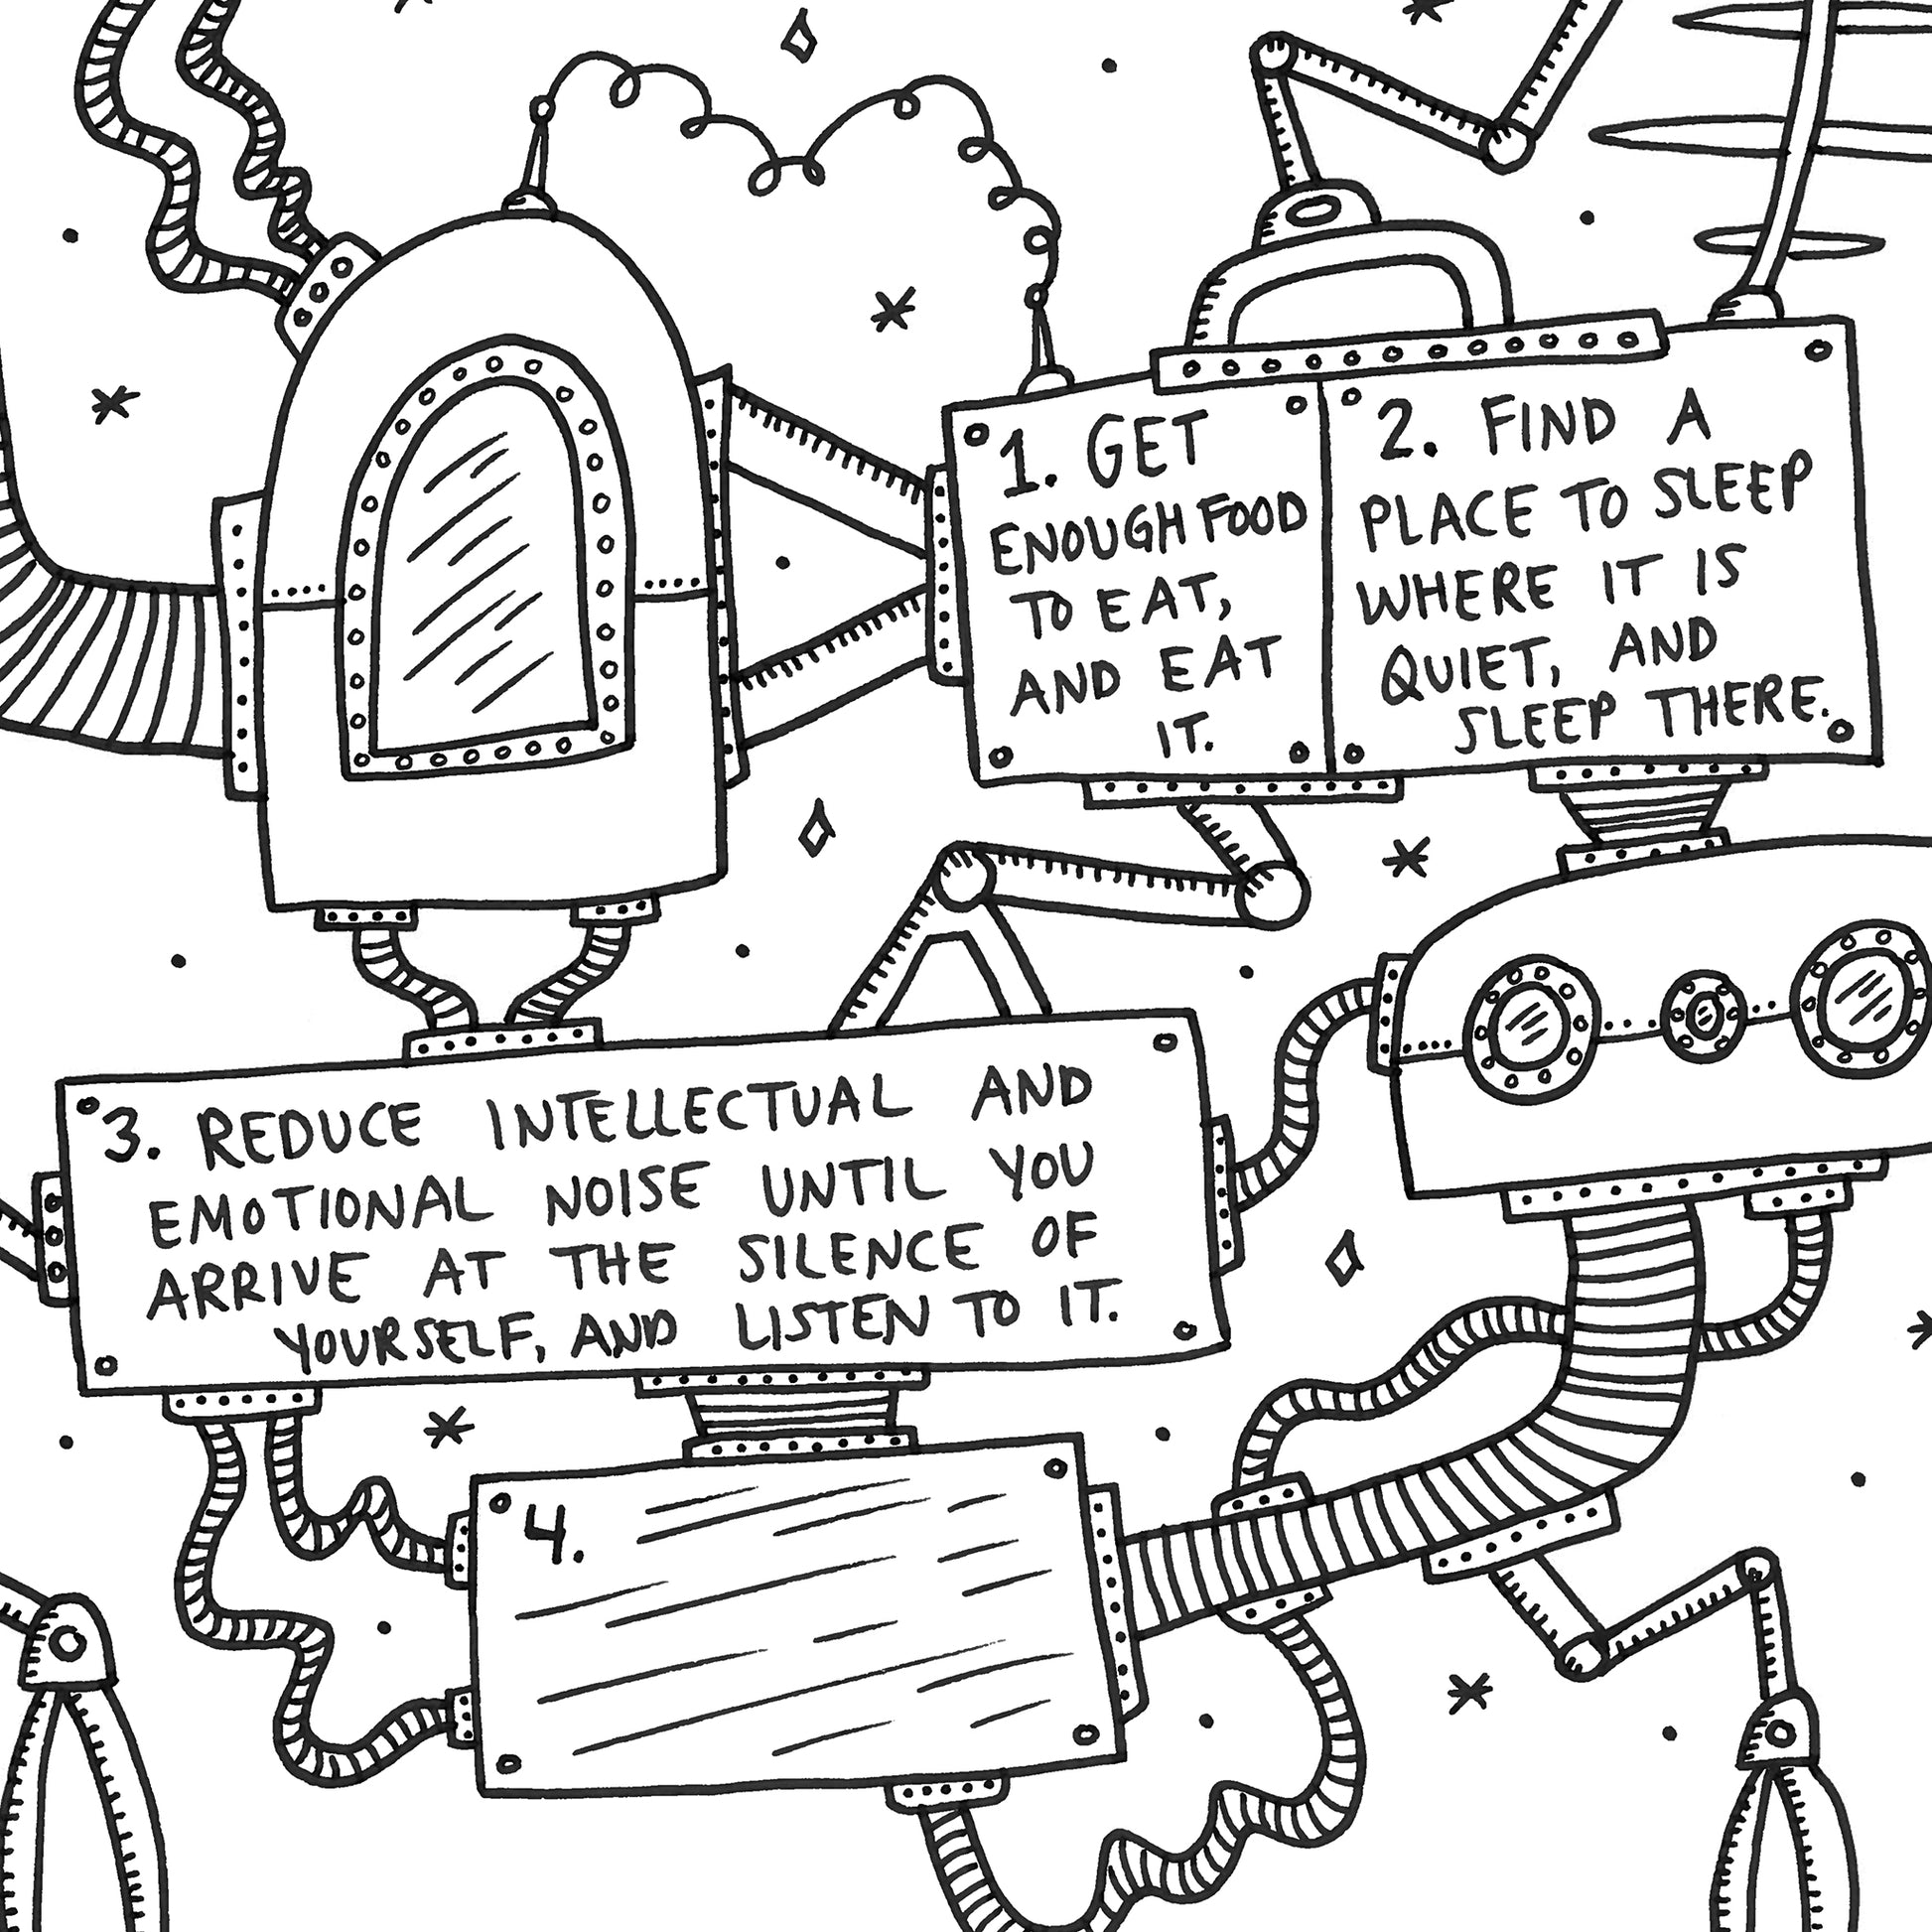 1. GET
ENOUGH FOOD
TO EAT,
AND EAT
IT.
2. FIND A
PLACE TO SLEEP
WHERE IT IS
QUIET, AND
SLEEP THERE.
3. REDUCE INTELLECTUAL AND
EMOTIONAL NOISE UNTIL YOU
ARRIVE AT THE SILENCE OF
YOURSELF, AND LISTEN TO IT.
4.